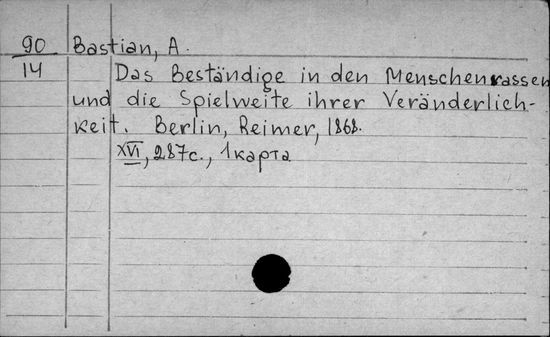 90 Bastian, A.
14 Das Beständige in den Menschenrassen
und die Spielweite ihrer Veränderlich-
keit. Berlin, Reimer, 1868.
XVI, 287с., 1 карта